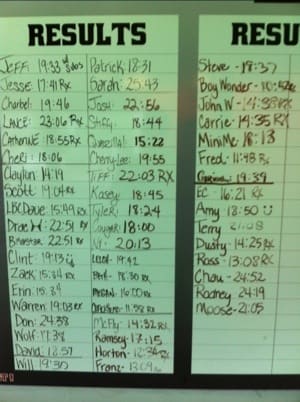 RESULTS
JEFF: 19:33
Jesse: 17:41 Rx
Charbel: 19:46
LANCE: 23:06 Rx
18:55 Rx
Cheri: 18:06
Clayton: 14:19
Scott: 19:04 Rx
LBC Dave: 15:49 Rx
Drae: 22:51 Rx
22:51 Rx
Clint: 19:13
Zack: 15:14 Rx
Erin: 15:39
Warren: 19:03 Rx
Don: 24:38
Wolf: 17:38
David: 18:57
Will 19:30
Patrick 18:31
Sarah: 25:43
Josh: 22:56
18:44
15:22
19:55
TIFF: 22:03 RX
Kasey: 18:45
Tyler: 18:24
18:00
20:13
19:42
18:30 Rx
16:00 Rx
McFly: 14:32 Rx
Ramsey: 17:15
Horton: 12:34 Rx
Franz: 13:09
RESU
Steve - 18:37
Boy Wonder -
John W - 14:38 RX
Carrie - 14:35 RX
Mini Me - 18:13
Fred - 11:48 Rx
19:39
EC - 16:21 RX
Amy 18:50
Terry 21:08
Dusty - 14:25 RX
Ross - 13:08 RX
Chau - 24:52
Rodney 24:19
Moose - 21:05